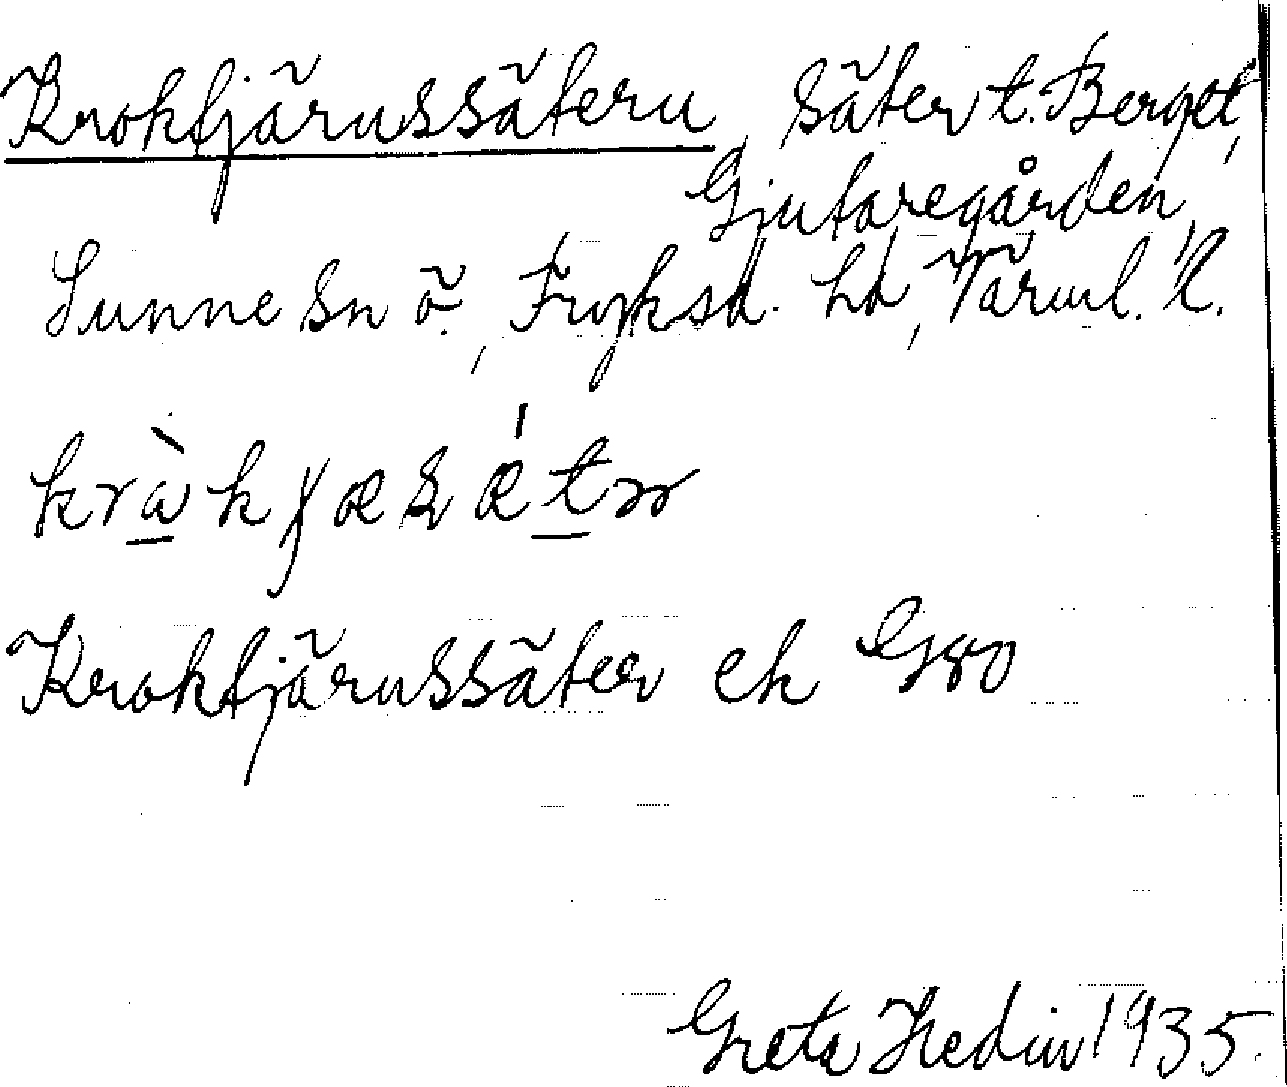 Kroktjärnssätern, säter t. Berget,
Gjutaregården,
Sunne sn ö., Fryksd. hd, Värml. l.
Kroktjärnssäter ek G80
Greta Hedin 1935.